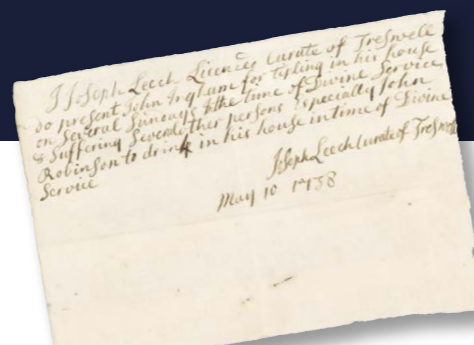 I Joseph Leech Licence Curate of Treswell
do present John Ingham for Tipling in his house
on Several Sundays In the time of Divine Service
& Suffering Several other persons Especially John
Robinson to drink in his house in time of Divine
Service
Joseph Leech Curate of Treswell
May 10 1738